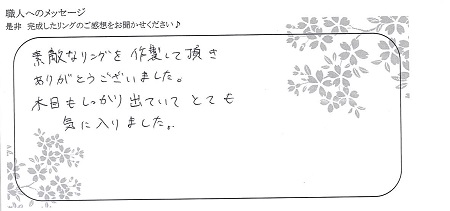 職人へのメッセージ
是非 完成したリングのご感想をお聞かせください♪
素敵なリングを作製して頂き
ありがとうございました。
木目もしっかり出ていてとても
気に入りました。